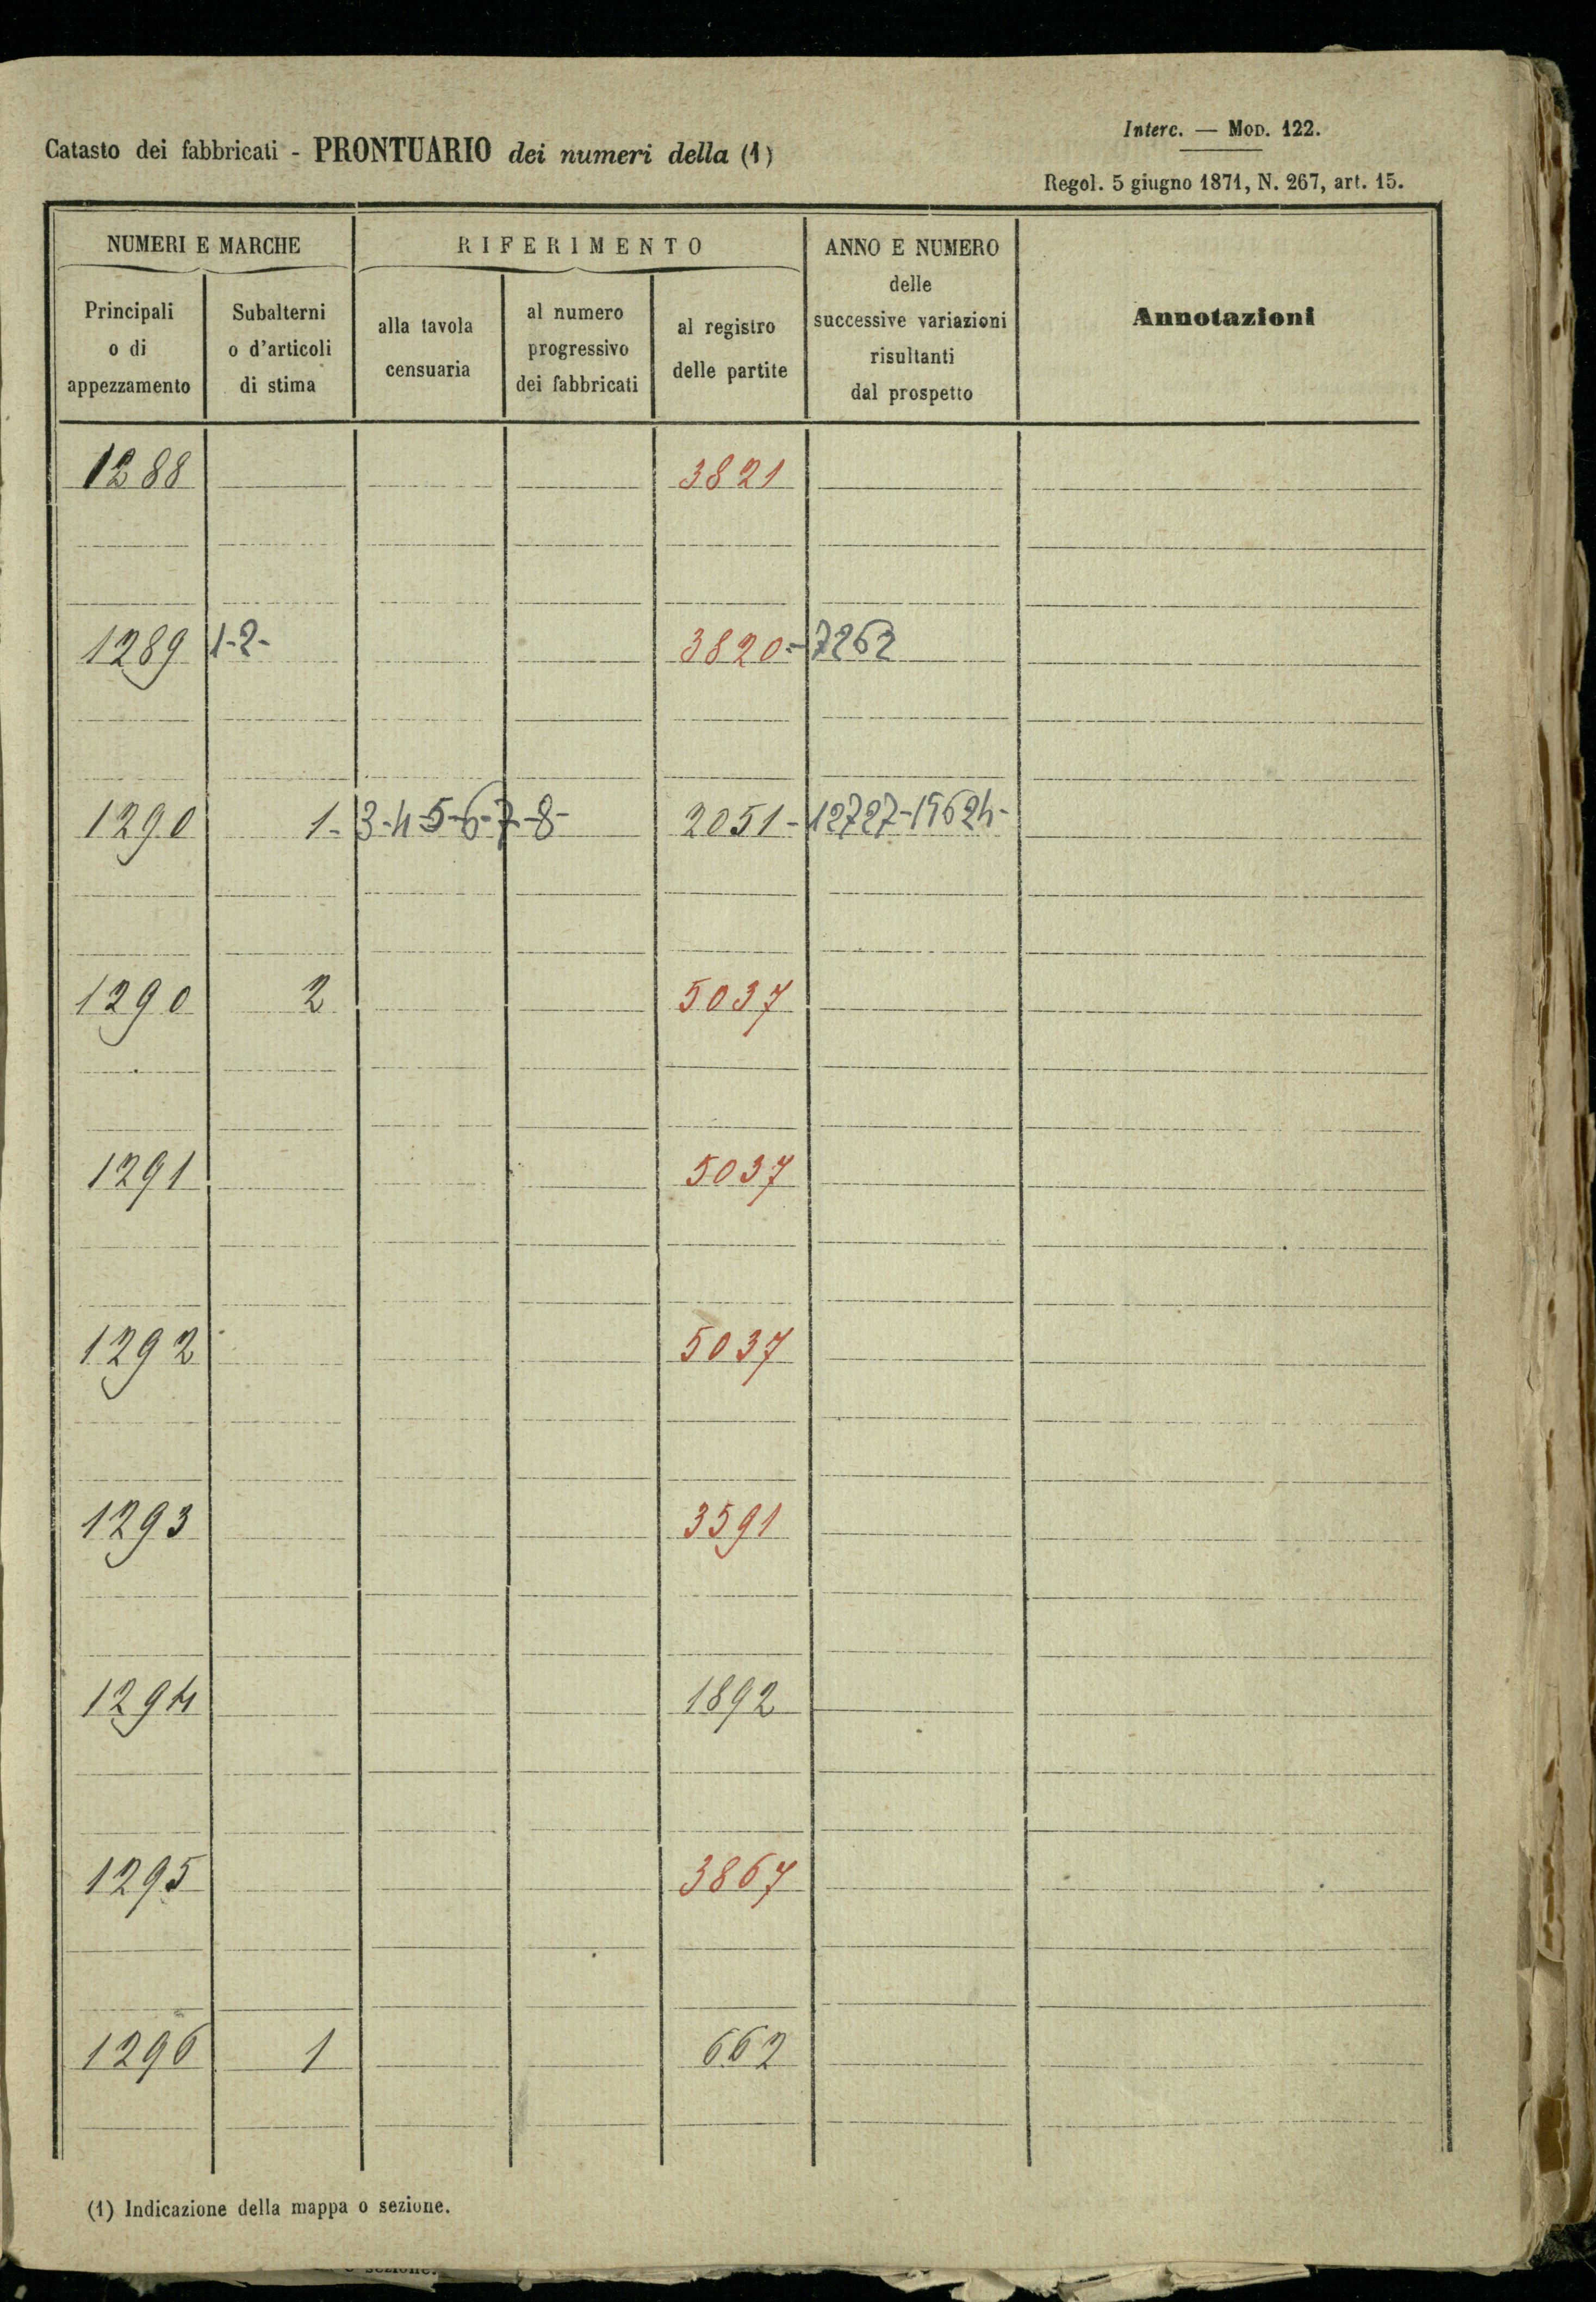 Catasto dei fabbricati - PRONTUARIO dei numeri della (1)
Interc. — Mod. 122.
Regol. 5 giugno 1871, N. 267, art. 15.
NUMERI E MARCHE
RIFERIMENTO
ANNO E NUMERO delle successive variazioni risultanti dal prospetto
Annotazioni
Principali o di appezzamento
Subalterni o d'articoli di stima
alla tavola censuaria
al numero progressivo dei fabbricati
al registro delle partite
1288 3821
1289 1-2- 3820.-7262
1290 1-3-4-5-6-7-8- 2051-12727-19624-
1290 2 5037
1291 5037
1292 5037
1293 3591
1294 1892
1295 3867
1296 1 662
(1) Indicazione della mappa o sezione.
sezione.